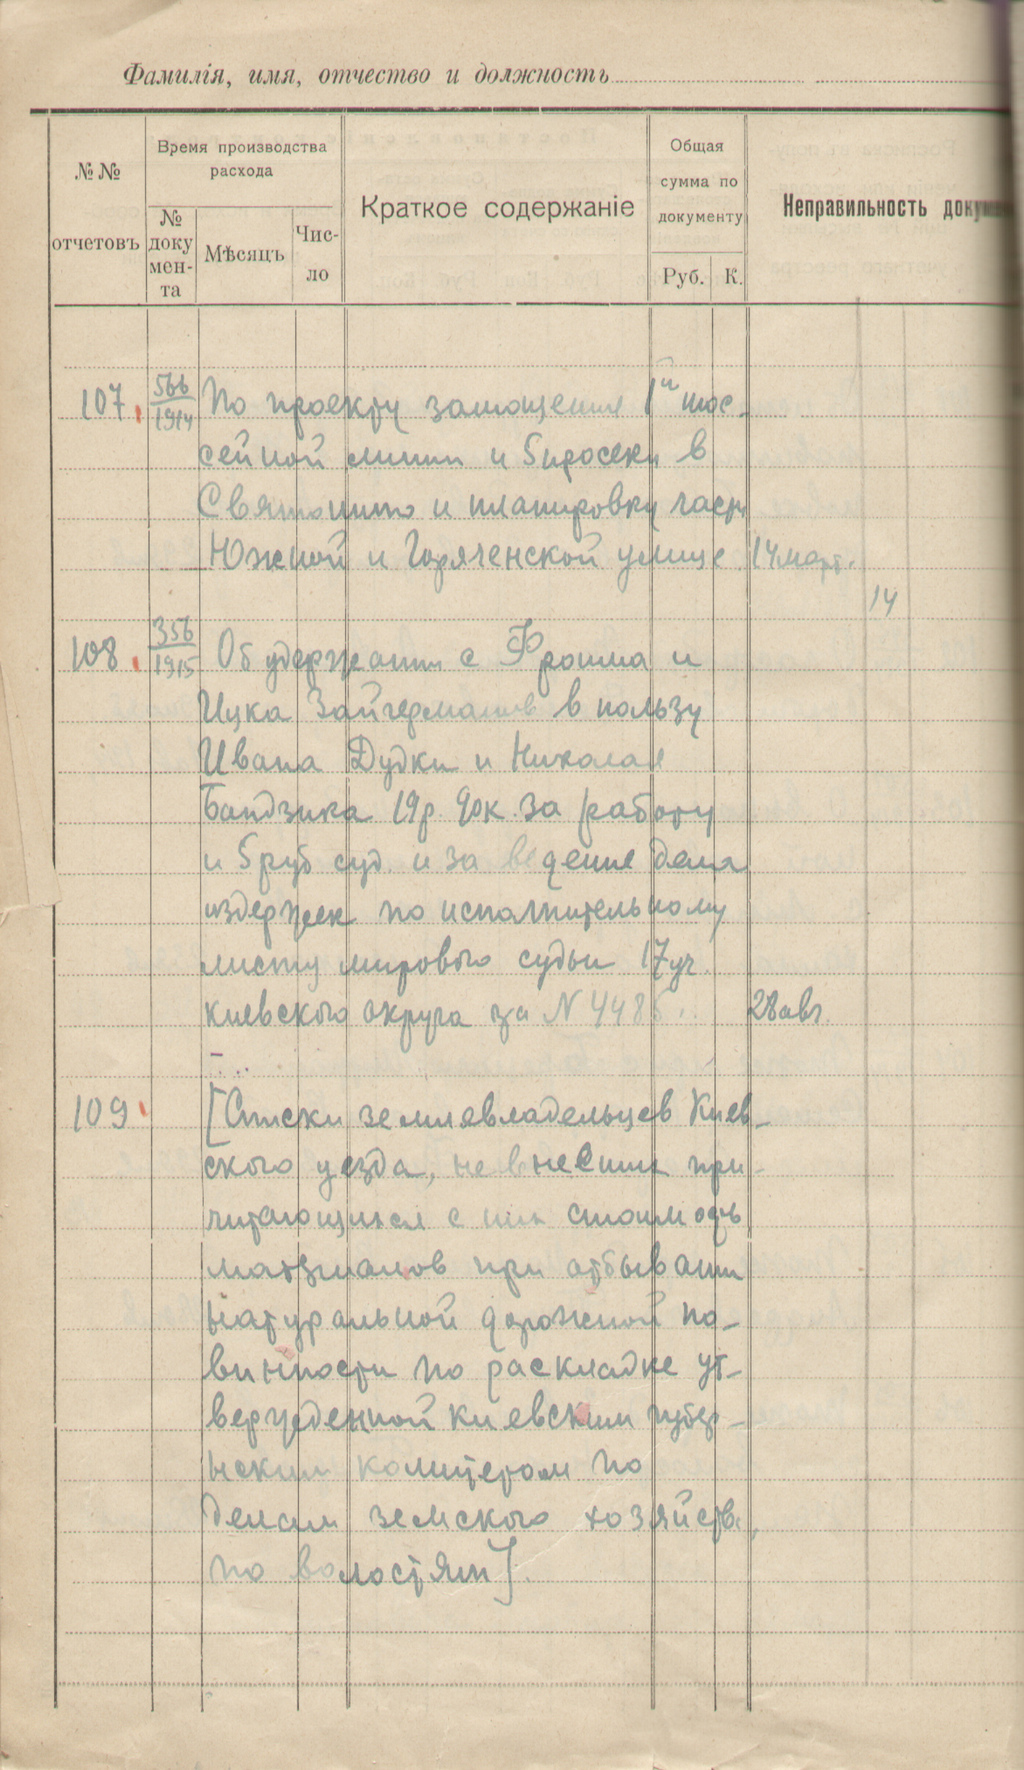 Фамилія, имя, отчество и должность
№№ отчетовъ
Время производства расхода
№ докумен-та
Мѣсяцъ
Чис-ло
Краткое содержаніе
Общая сумма по документу
Руб. К.
Неправильность
107. 566/1914 По проекту замощения 1й шос-
сейной линии и 5 просеки в
Святошино и планировку части
Южной и Горяченской улице 14 март.
14
108. 356/1915 Об удержании с Фроима и
Ицка Зайчерманов в пользу
Ивана Дудки и Николая
Бандзика 19 р. 90 к. за работу
и 5 руб суд. и за ведение дела
издержек по исполнительному
листу мирового судьи 17 уч.
киевского округа за N 4485. 28 авг.
109. [Списки землевладельцев Киев-
ского уезда, не внесших при-
читающихся с них стоимость
материалов при отбывании
натуральной дорожной по-
винности по раскладке ут-
вержденной киевским губер-
нским комитетом по
делам земского хозяйства,
по волостям].